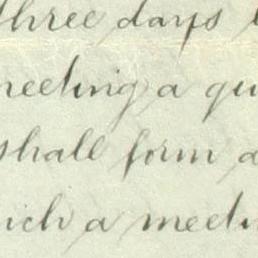 three days
meeting a qu
shall form a
such a meeti